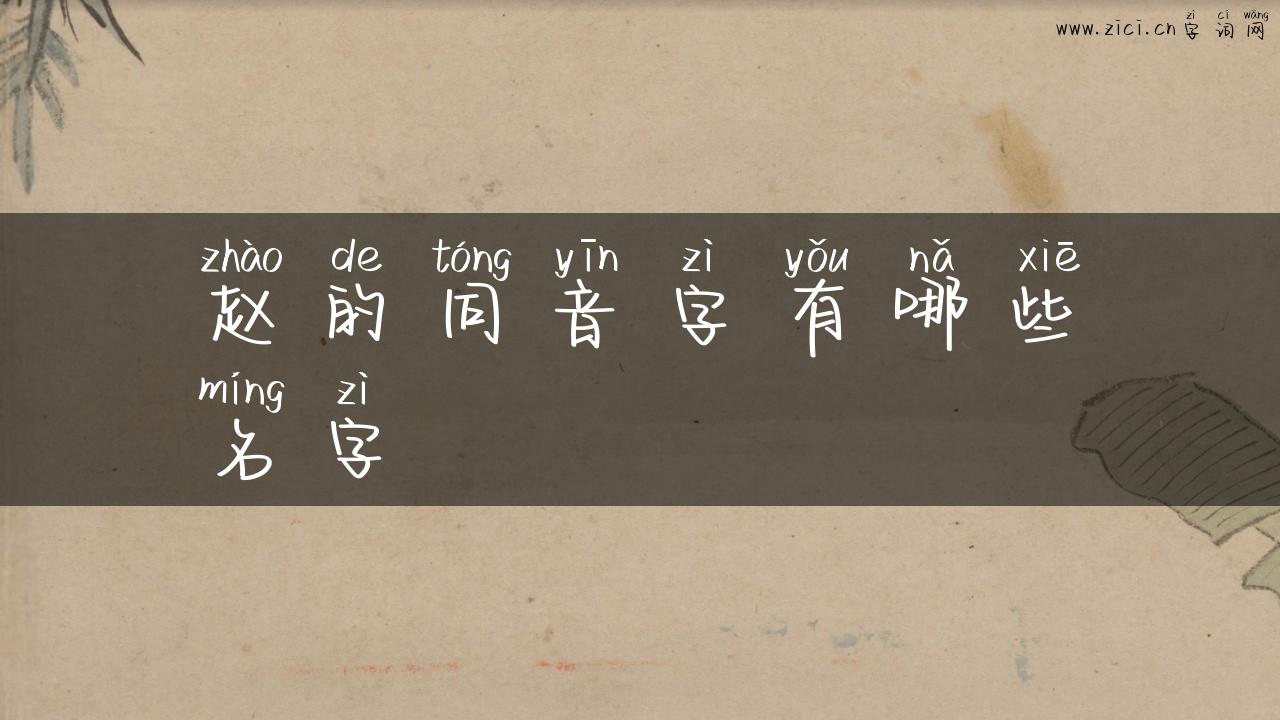 zì cí wǎng
www.zici.cn 字 词 网
zhào de tóng yīn zì yǒu nǎ xiē
赵 的 同 音 字 有 哪 些
míng zì
名 字